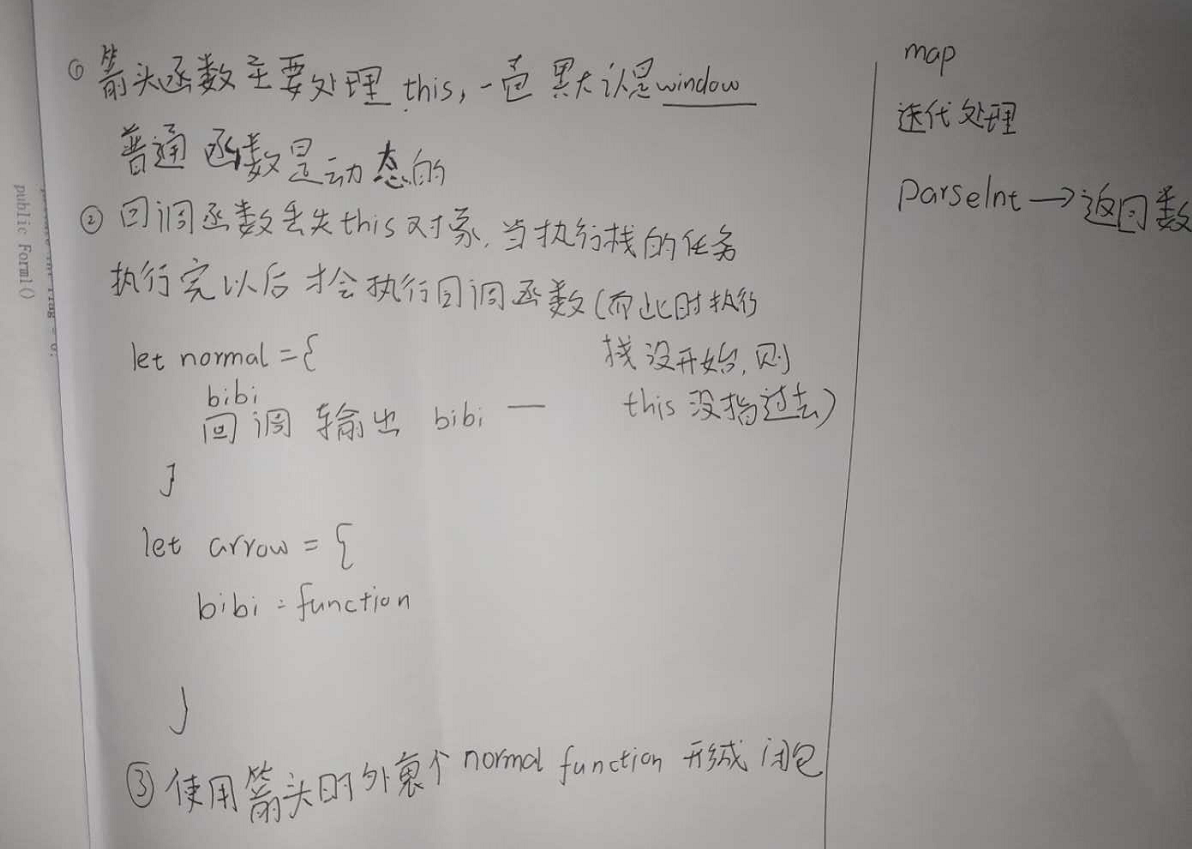 ① 箭头函数主要处理 this, 一 默认是window
普通函数是动态的
② 回调函数丢失this对象,当执行栈的任务
执行完以后才会执行回调函数(而此时执行
栈没开始,则
this没指过去)
let normal = {
bibi
回调 输出 bibi —
}
let arrow = {
bibi : function
}
③ 使用箭头时外裹个 normal function 形成 闭包
map
迭代处理
parseInt → 返回数
public Form1()